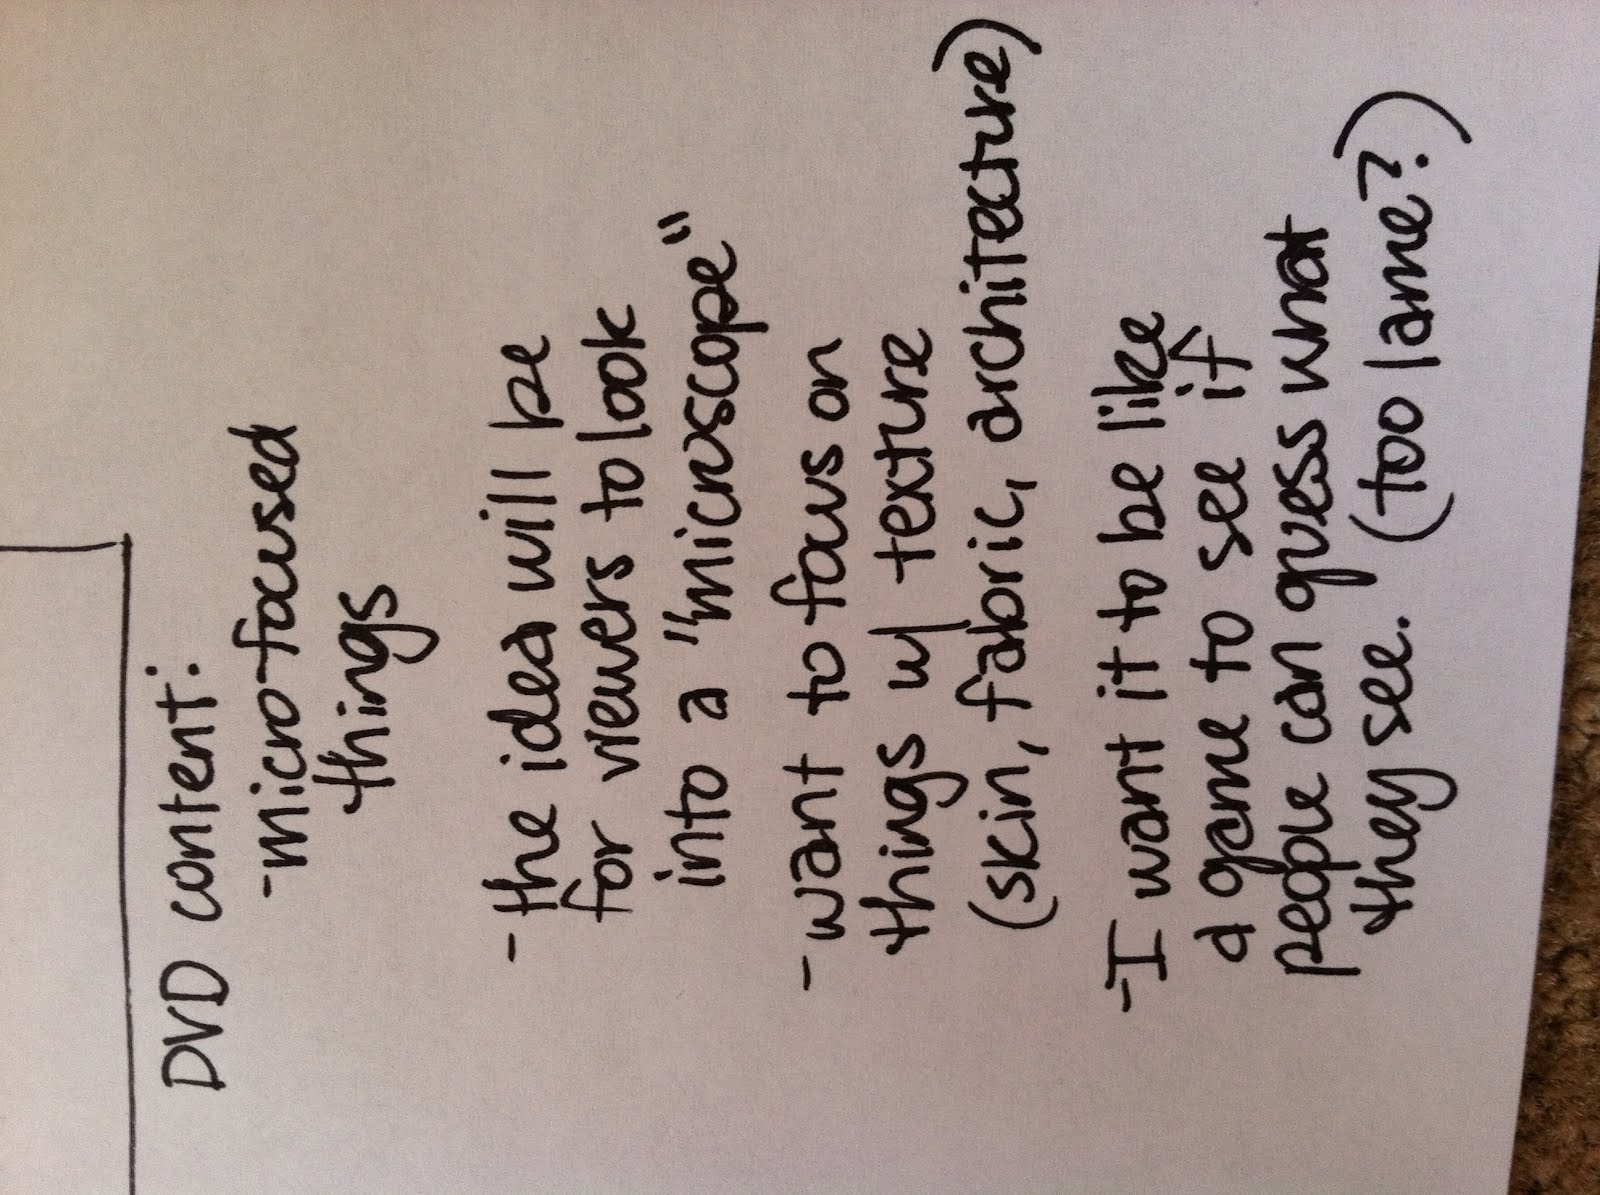 DVD content:
-micro focused
things
-the idea will be
for viewers to look
into a "microscope"
-want to focus on
things w/ texture
(skin, fabric, architecture)
-I want it to be like
a game to see if
people can guess what
they see. (too lame?)